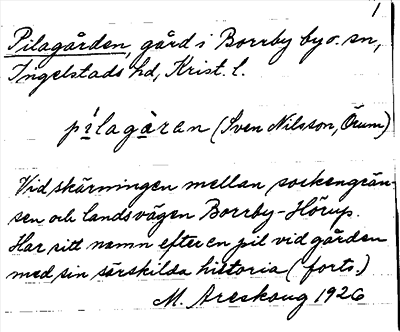 1
Pilagården, gård i Borrby by o. sn,
Ingelstads hd, Krist. l.
pìlagàran (Sven Nilsson, Örum)
Vid skärningen mellan sockengrän-
sen och landsvägen Borrby-Hörup.
Har sitt namn efter en pil vid gården
med sin särskilda historia (forts.)
M. Areskoug 1926